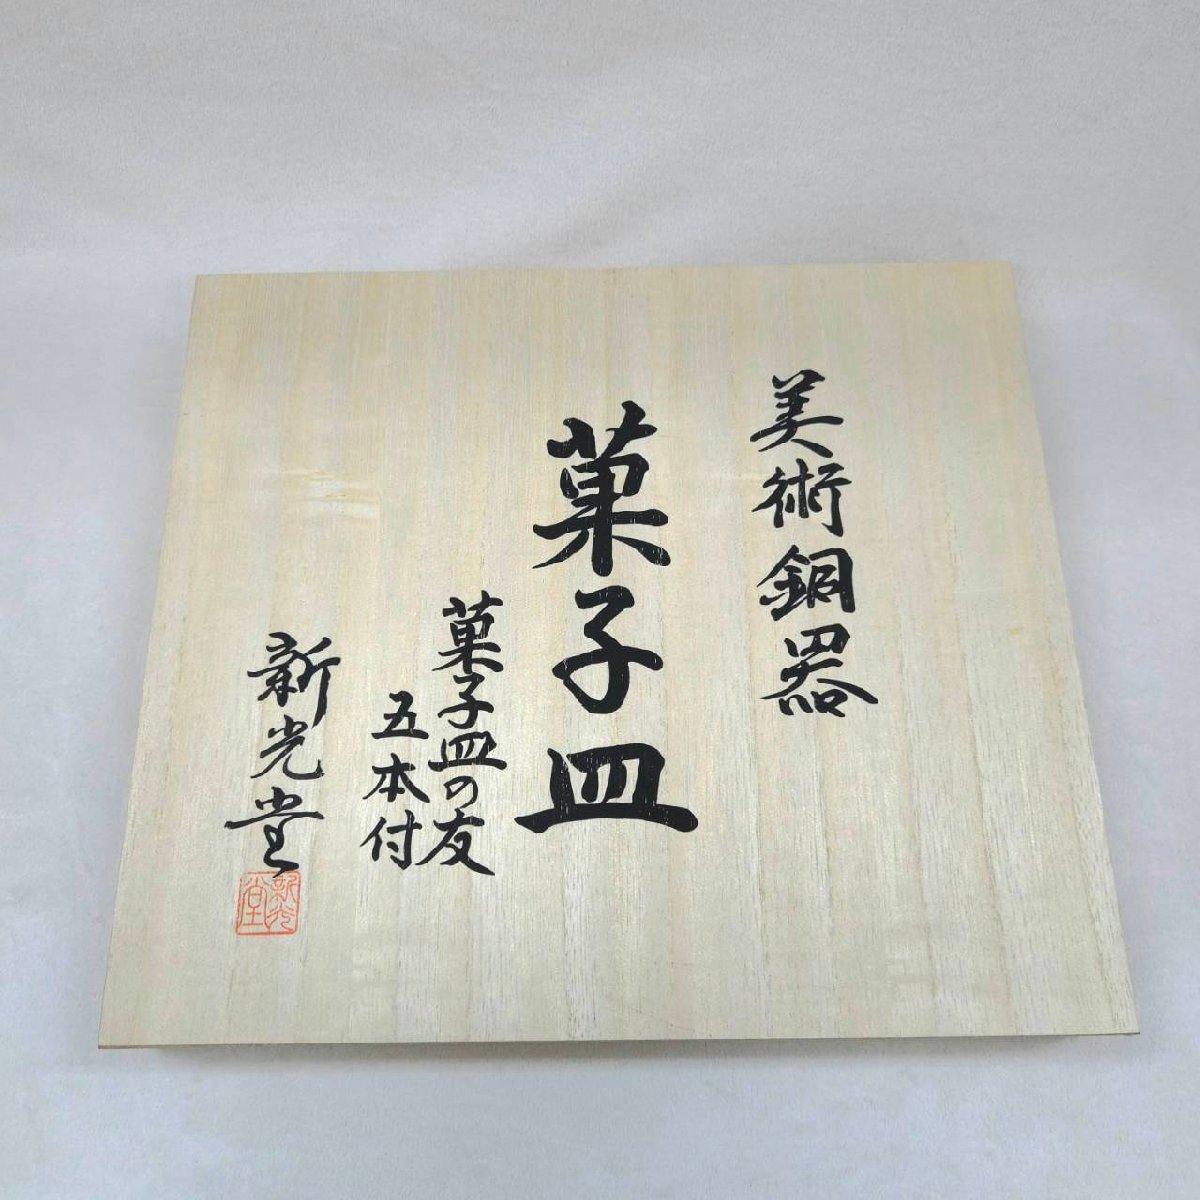 美術銅器
菓子皿
菓子皿の友
五本付
新光堂
新光堂